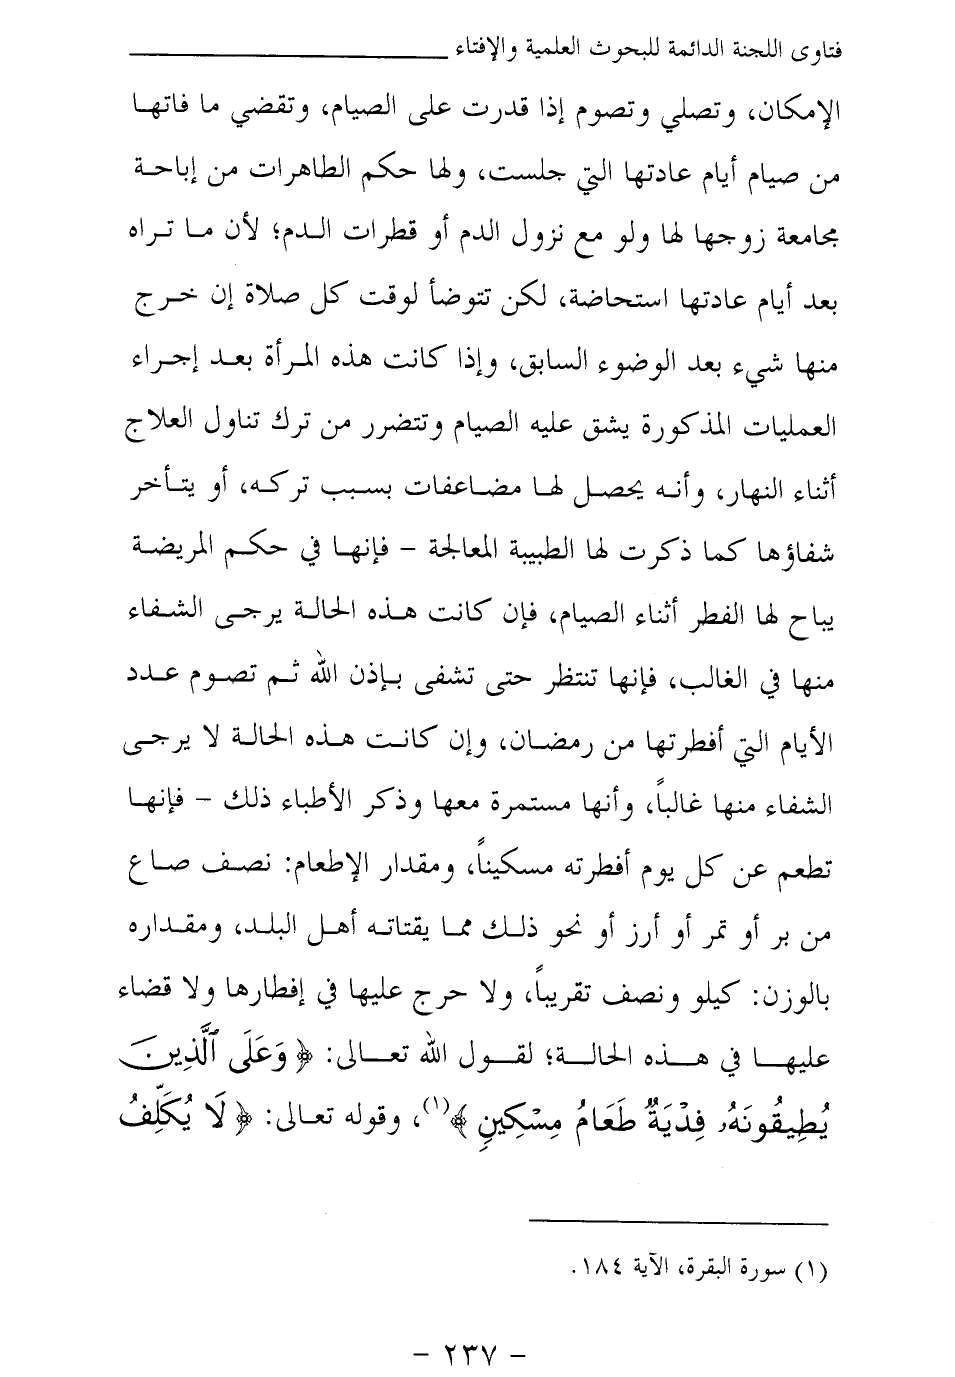 فتاوى اللجنة الدائمة للبحوث العلمية والإفتاء
الإمكان، وتصلي وتصوم إذا قدرت على الصيام، وتقضي ما فاتها
من صيام أيام عادتها التي جلست، ولها حكم الطاهرات من إباحة
مجامعة زوجها لها ولو مع نزول الدم أو قطرات الدم؛ لأن ما تراه
بعد أيام عادتها استحاضة، لكن تتوضأ لوقت كل صلاة إن خرج
منها شيء بعد الوضوء السابق، وإذا كانت هذه المرأة بعد إجراء
العمليات المذكورة يشق عليه الصيام وتتضرر من ترك تناول العلاج
أثناء النهار، وأنه يحصل لها مضاعفات بسبب تركه، أو يتأخر
شفاؤها كما ذكرت لها الطبيبة المعالجة – فإنها في حكم المريضة
يباح لها الفطر أثناء الصيام، فإن كانت هذه الحالة يرجى الشفاء
منها في الغالب، فإنها تنتظر حتى تشفى بإذن الله ثم تصوم عدد
الأيام التي أفطرتها من رمضان، وإن كانت هذه الحالة لا يرجى
الشفاء منها غالباً، وأنها مستمرة معها وذكر الأطباء ذلك – فإنها
تطعم عن كل يوم أفطرته مسكيناً، ومقدار الإطعام: نصف صاع
من بر أو تمر أو أرز أو نحو ذلك مما يقتاته أهل البلد، ومقداره
بالوزن: كيلو ونصف تقريباً، ولا حرج عليها في إفطارها ولا قضاء
عليها في هذه الحالة؛ لقول الله تعالى: ﴿ وَعَلَى ٱلَّذِينَ
يُطِيقُونَهُۥ فِدْيَةٌ طَعَامُ مِسْكِينٍ ﴾(١)، وقوله تعالى: ﴿ لَا يُكَلِّفُ
(١) سورة البقرة، الآية ١٨٤.
– ٢٣٧ –